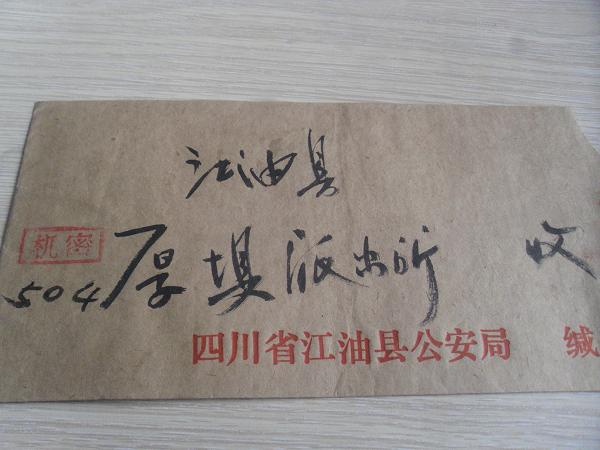 江油县
机密
504 厚垻派出所 收
四川省江油县公安局 缄